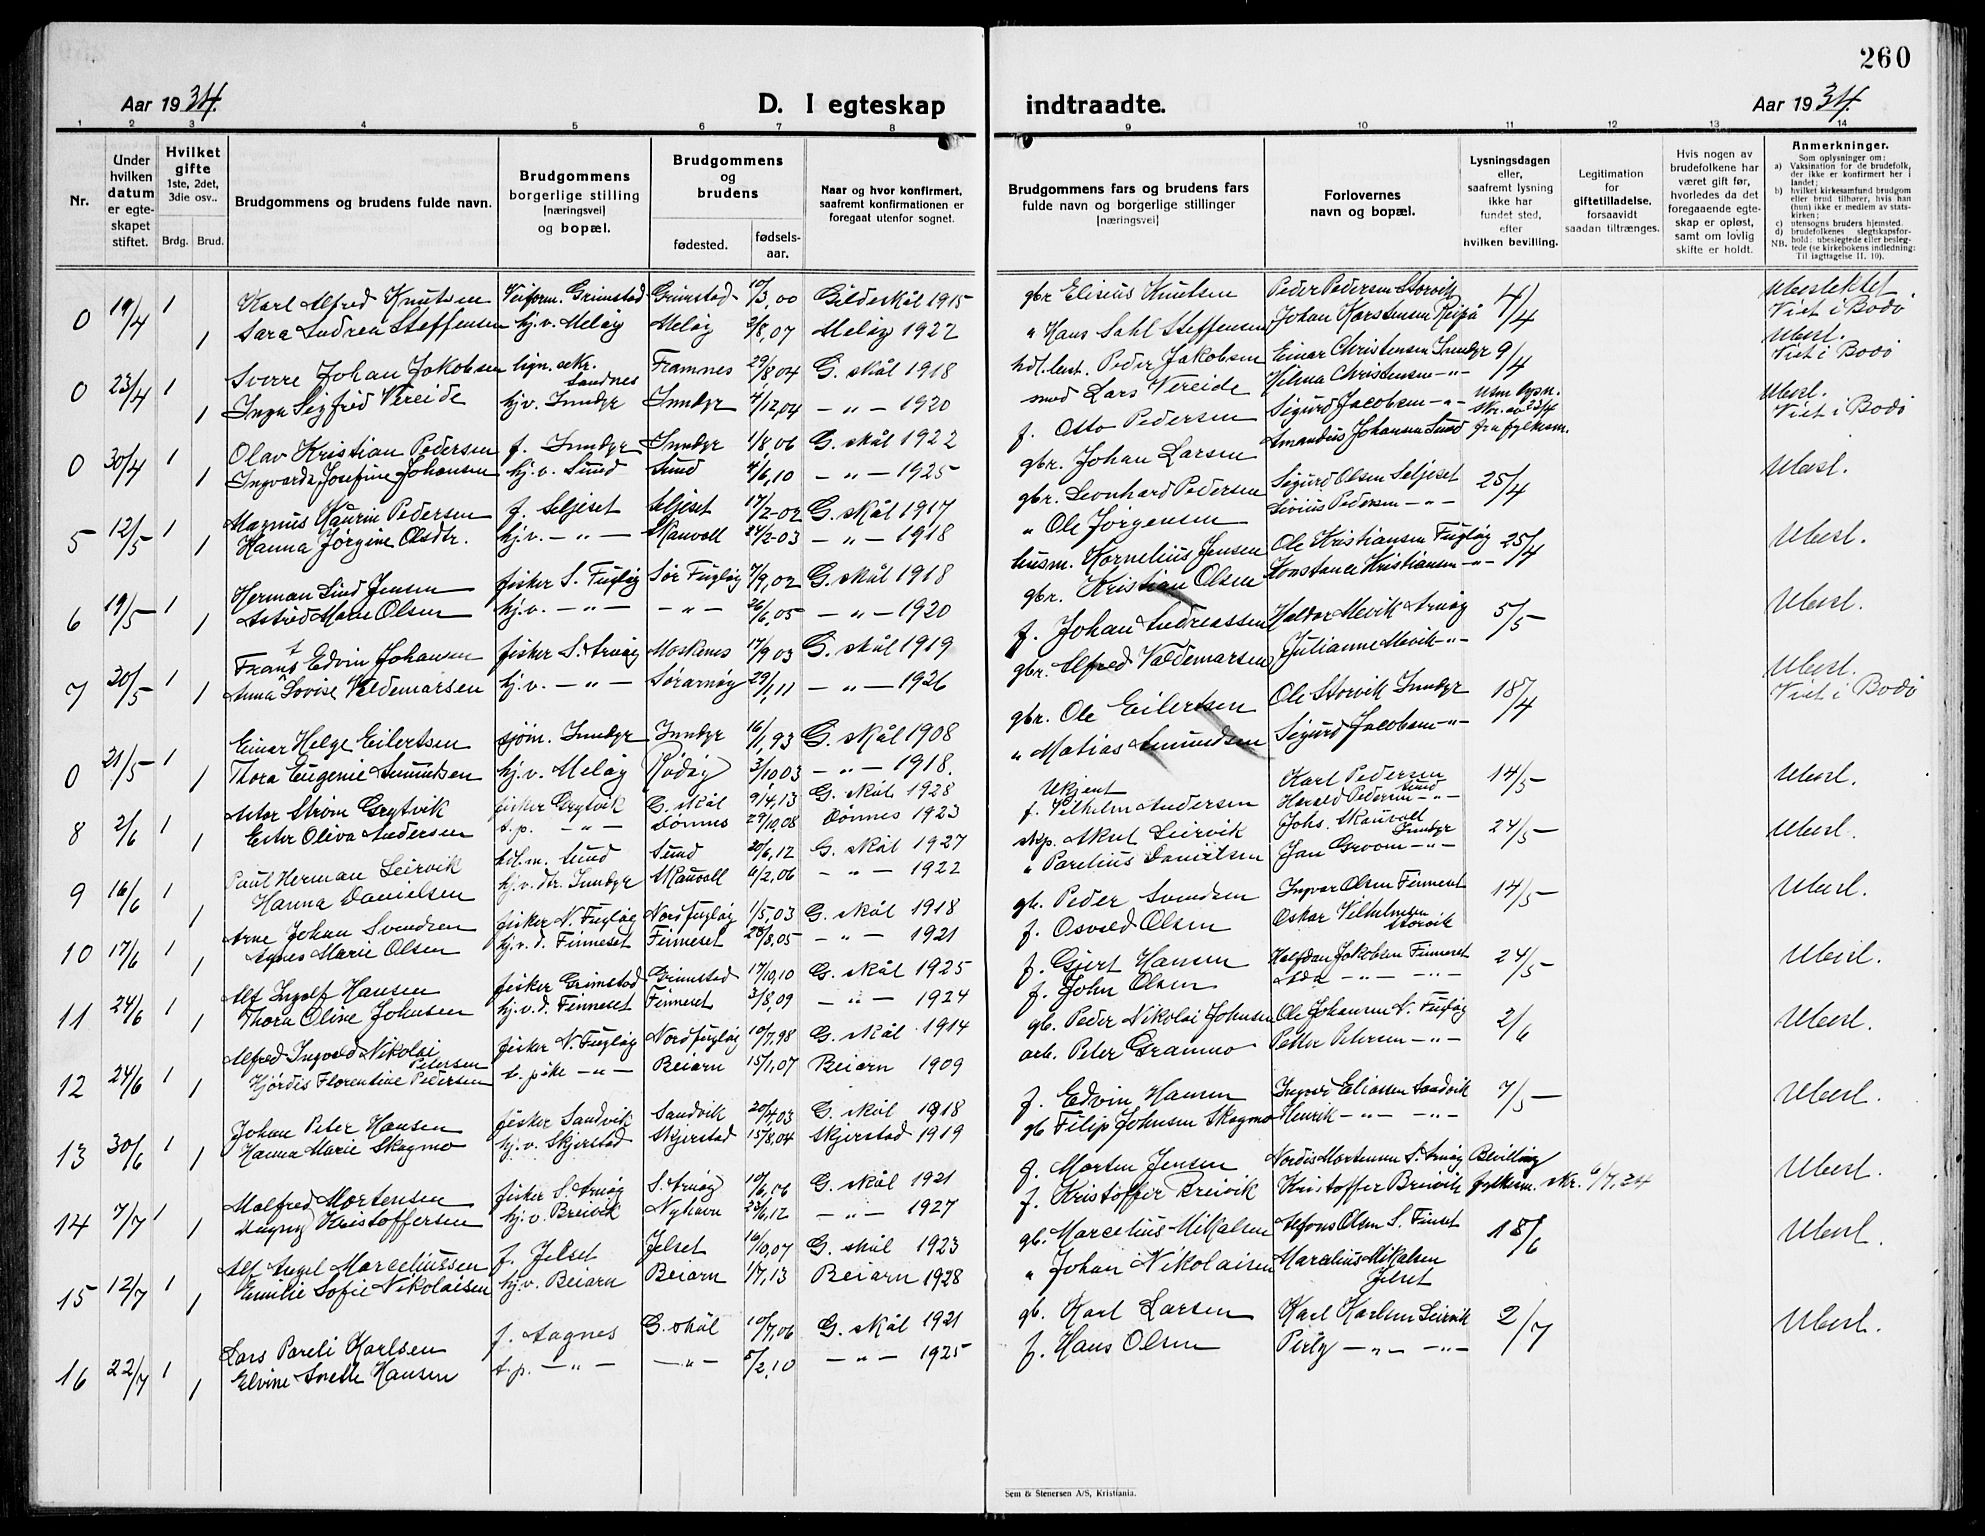 260
Aar 1934.
D. I egteskap
indtraadte.
Aar 1934.
1 2 3 4 5 6 7 8 9 10 11 12 13 14
Nr.
Under hvilken datum er egteskapet stiftet.
Hvilket gifte 1ste, 2det, 3die osv..
Brdg. Brud.
Brudgommens og brudens fulde navn.
Brudgommens borgerlige stilling [næringsvei] og bopæl.
Brudgommens og brudens
fødested. fødsels-aar.
Naar og hvor konfirmert, saafremt konfirmationen er foregaat utenfor sognet.
Brudgommens fars og brudens fars fulde navn og borgerlige stillinger [næringsvei]
Forlovernes navn og bopæl.
Lysningsdagen eller, saafremt lysning ikke har fundet sted, efter hvilken bevilling.
Legitimation for giftetilladelse, forsaavidt saadan tiltrænges.
Hvis nogen av brudefolkene har været gift før, hvorledes da det foregaaende egteskap er opløst, samt om lovlig skifte er holdt.
Anmerkninger.
Som oplysninger om:
a) Vaksination for de brudefolk, der ikke er konfirmert her i landet;
b) hvilket kirkesamfund brudgom eller brud tilhører, hvis han (hun) ikke er medlem av statskirken;
c) utensogns bruders hjemsted.
d) brudefolkenes slegtskapsforhold: ubeslegtede eller beslegtede (se kirkebokens indledning:
NB. Til iagttagelse II. 10).
0 19/4 1 Karl Alfred Knutsen Veiform. Grimstad Grimstad 10/3,00 Gildeskål 1915 gbr Elisius Knutsen Peder Pedersen Storvik 4/4 Ubeslektet
1 Sara Andrea Steffensen hj.v. Meløy Meløy 2/8,07 Meløy 1922 " Hans Dahl Steffensen Johan Karstensen Reipå Viet i Bodø
0 23/4 1 Sverre Johan Jakobsen lign. sekr. Sandnes Framnes 29/8 04 G. skål 1918 hdl. Peder Jakobsen Einar Christensen Inndyr 9/4 Ubesl.
1 Inga Sigfrid Vereide hj.v. Inndyr Inndyr 4/12,04 — " — 1920 smed Lars Vereide Hilma Christensen — " — Viet i Bodø
0 30/4 1 Olav Kristian Pedersen f. Inndyr Inndyr 1/8,06 G. skål 1922 f. Otto Pedersen Sigurd Jacobsen — " — Uten lysn. Skr. av 23/4 Ubesl.
1 Ingvarda Josefine Johansen hj.v. Sund Sund 4/6,10 — " — 1925 gbr. Johan Larsen Amandus Johansen Sund fra fylkesm. Viet i Bodø
5 12/5 1 Magnus Haurin Pedersen f. Seljeset Seljeset 17/2-02 G. skål 1917 gbr. Leonhard Pedersen Sigurd Olsen Seljeset 25/4 Ubesl.
1 Hanna Jørgine Olsdtr. hj.v. — " — Skauvoll 24/2-03 — " — 1918 " Ole Jørgensen Sivius Pedersen — " —
6 19/5 1 Herman Lind Jensen fisker S. Fugløy Sør Fugløy 7/9,02 G. skål 1918 husm. Kornelius Jensen Ole Kristiansen Fugløy 25/4 Ubesl.
1 Astrid Marie Olsen hj.v. — " — — " — 26/6,05 — " — 1920 gbr. Kristian Olsen Konstance Kristiansen — " —
7 30/5 1 Frants Edvin Johansen fisker S. Arnøy Moskenes 17/9 03 G. skål 1919 f. Johan Andreassen Haldor Mevik Arnøy 5/5 Ubesl.
1 Anna Lovise Valdemarsen hj.v. — " — Sørarnøy 29/1,11 — " — 1926 gbr. Alfred Valdemarsen Julianne Mevik — " —
0 21/5 1 Einar Helge Eilertsen sjøm. Inndyr Inndyr 16/11,93 G. skål 1908 gbr. Ole Eilertsen Ole Storvik Inndyr 18/4 Ubesl.
1 Thora Eugenie Amundsen hj.v. Meløy Rødøy 3/10 03 — " — 1918. " Matias Amundsen Sigurd Jacobsen — " — Viet i Bodø
8 2/6 1 Strøm Grytvik fisker Grytvik G. skål 9/4,13 G. skål 1928 Ukjent Karl Pedersen Sund 14/5 Ubesl.
1 Ester Oliva Andersen t.p. — " — Dønnes 29/10,08 Dønnes 1923 f. Vilhelm Andersen Harald Pedersen — " —
9 16/6 1 Paul Herman Leirvik Sund Sund 20/6,12 G. skål 1927 skp. Akul Leirvik Johs. Skauvoll Inndyr 24/5 Ubesl.
1 Hanna Danielsen hj.v. dtr. Inndyr Skauvoll 6/2,06 — " — 1922 " Parelius Danielsen Jan Groom — " —
10 17/6 1 Arne Johan Svendsen fisker N. Fugløy Nord fugløy 1/5,03 G. skål 1918 gb. Peder Svendsen Ingvar Olsen Finneset 14/5 Ubesl.
1 Agnes Marie Olsen hj.v.d. Finneset Finneset 28/8,05 — " — 1921 f. Osvald Olsen Oskar Vilhelmsen Storvik
11 24/6 1 Alf Ingolf Hansen fisker Grimstad Grimstad 17/10,10 G. skål 1925 f. Gjert Hansen Halfdan Jakobsen Finneset 24/5 Ubesl.
1 Thora Oline Johnsen hj.v.d. Finneset Finneset 3/8,09 — " — 1924 f. John Olsen Alda — " — — " —
12 24/6 1 Alfred Ingvald Nikolai Petersen fisker N. Fugløy Nord fugløy 10/7,98 G. skål 1914 gb. Peder Nikolai Johnsen Ole Johansen N. Fugløy 2/6 Ubesl.
1 Hjørdis Florentine Pedersen t. pike — " — Beiarn 15/1,07 Beiarn 1909 arb. Peter Gramno Petter Petersen — " —
13 30/6 1 Johan Peter Hansen fisker Sandvik Sandvik 20/4,03 G. skål 1918 f. Edvin Hansen Ingvar Eliassen Sandvik 7/5 Ubesl.
1 Hanna Marie Skagmo hj.v. Skjerstad Skjerstad 15/8,04 Skjerstad 1919 gb Filip Johnsen Skagmo Henrik — " — — " —
14 7/7 1 Malfred Mortensen fisker S. Arnøy S. Arnøy 10/6,06 G. skål 1921 g. Morten Jensen Nordis Mortensen S. Arnøy Bevilling Ubesl.
1 Magny Kristoffersen hj.v. Breivik Nyhavn 25/6,12 — " — 1927 f. Kristoffer Breivik Kristoffer Breivik fylkesm. skr. 6/7,34
15 12/7 1 Alf Angel Marceliussen f. Jelset Jelset 16/10,07 G. skål 1923 gb. Marcelius Mikalsen Alfons Olsen S. Finset 18/6 Ubesl.
1 Emilie Sofie Nikolaisen hj.v. Beiarn Beiarn 1/7,13 Beiarn 1928 " Johan Nikolaisen Marcelius Mikalsen Jelset
16 22/7 1 Lars Pareli Karlsen f. Aagnes G. skål 10/7,06 G. skål 1921 gb. Karl Larsen Karl Karlsen Leirvik 2/7 Ubesl.
1 Elvine Anette Hansen t.p. — " — — " — 5/2,10 — " — 1925 f. Hans Olsen Pirly — " — — " —
Sem & Stenersen A/S, Kristiania.